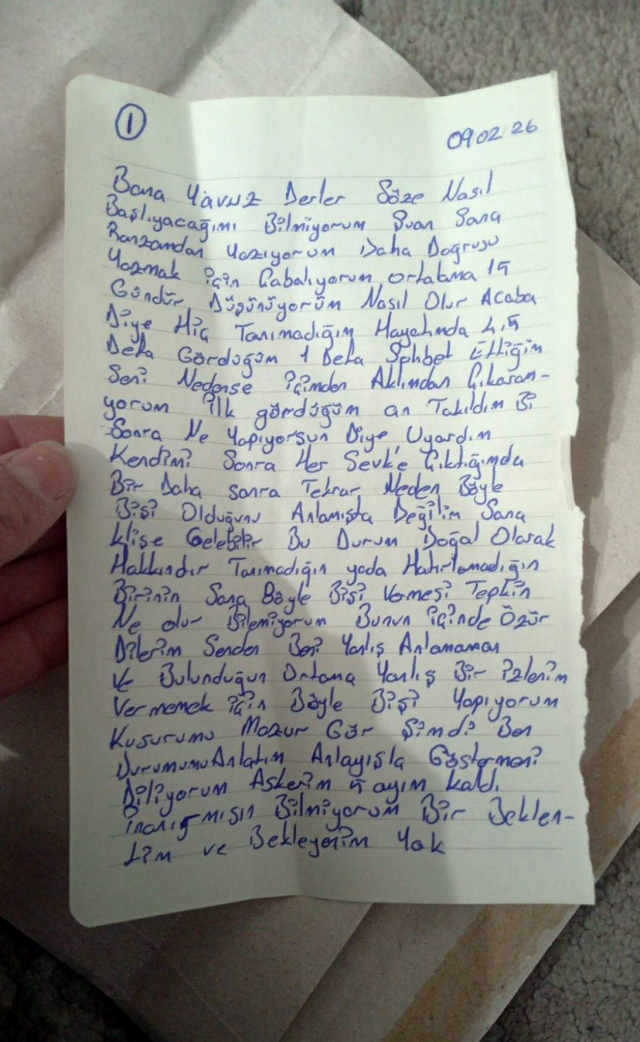 1
09 02 26
Bana Yavuz Derler Söze Nasıl
Başlıyacağımı Bilmiyorum Şuan Sana
Ranzamdan Yazıyorum Daha Doğrusu
Yazmak için Çabalıyorum ortalama 15
Gündür Düşünüyorum Nasıl Olur Acaba
Diye Hiç Tanımadığım Hayatımda 4,5
Defa Gördüğüm 1 Defa Sohbet Ettiğim
Seni Nedense içimden Aklımdan Çıkaram-
yorum ilk gördüğüm an Takıldım Bi
Sonra Ne Yapıyorsun Diye Uyardım
Kendimi Sonra Her Sevk'e Çıktığımda
Bir Daha sonra Tekrar Neden Böyle
Bişi Olduğunu Anlamışta Değilim Sana
klişe Gelebilir Bu Durum Doğal Olarak
Hakkındır Tanımadığın yada Hatırlamadığın
Birinin Sana Böyle Bişi Vermesi Tepkin
Ne olur Bilemiyorum Bunun içinde Özür
Dilerim Senden Beni Yanlış Anlamaman
ve Bulunduğun Ortama Yanlış Bir izlenim
Vermemek için Böyle Bişi Yapıyorum
Kusurumu Mazur Gör Şimdi Ben
Durumumu Anlatım Anlayışla Göstermeni
Diliyorum Askerim 5 ayım kaldı.
inanırmısın Bilmiyorum Bir Beklen-
tim ve Bekleyenim Yok